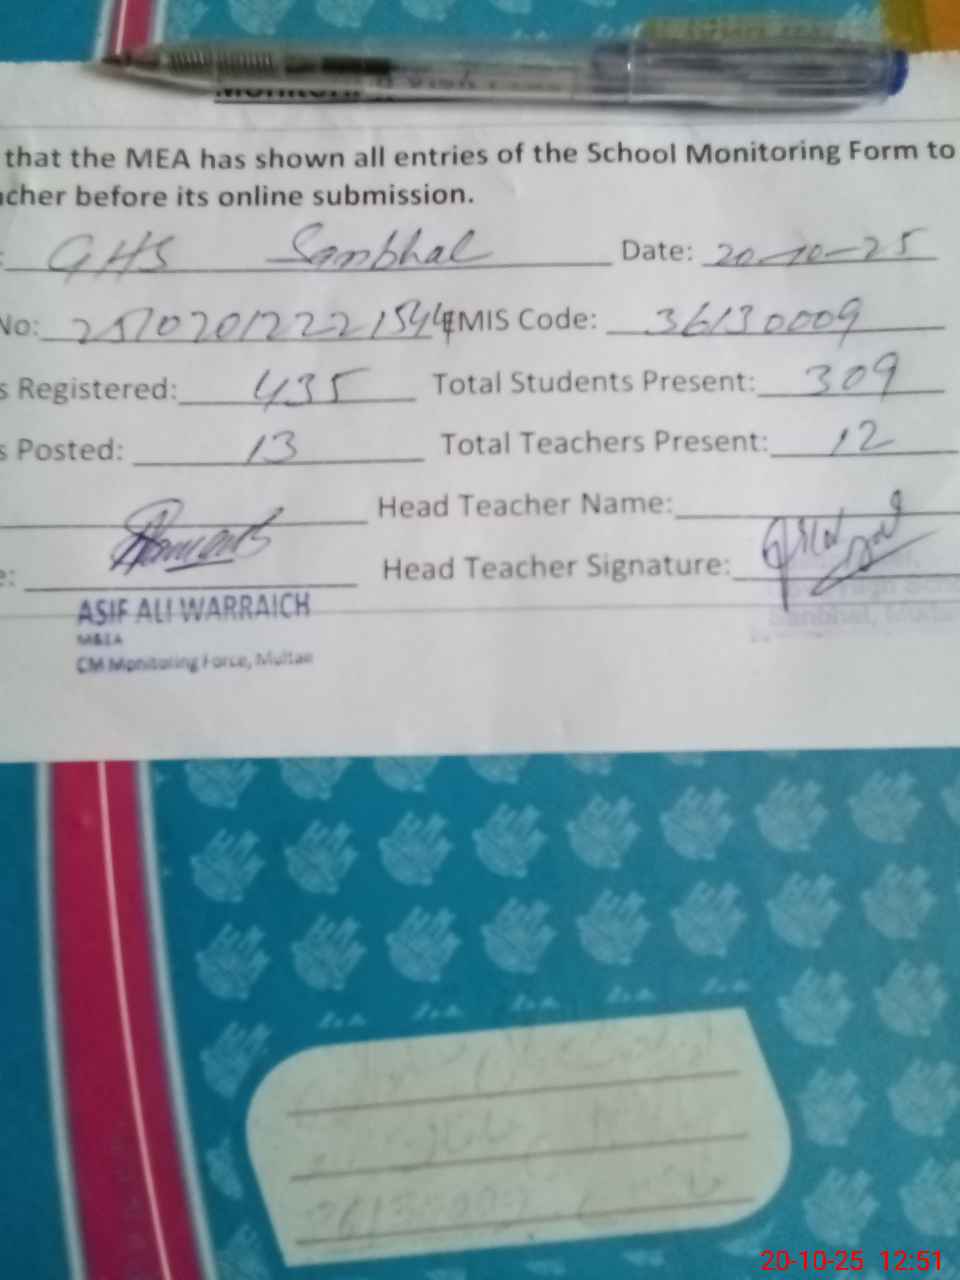 that the MEA has shown all entries of the School Monitoring Form to
cher before its online submission.
GHS Sambhal Date: 20-10-25
No: 25102012221544 EMIS Code: 36130009
s Registered: 435 Total Students Present: 309
s Posted: 13 Total Teachers Present: 12
Head Teacher Name:
e: Head Teacher Signature:
ASIF ALI WARRAICH
M&EA
CM Monitoring Force, Multan
20-10-25 12:51